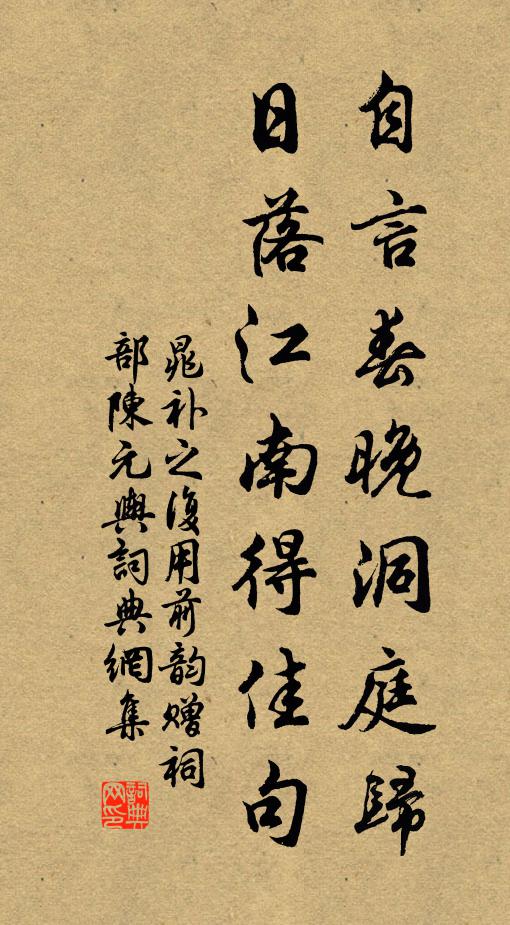 自言春晚洞庭歸
日落江南得佳句
晁补之復用前韵赠祠
部陳元興詞典網集
詞典网印